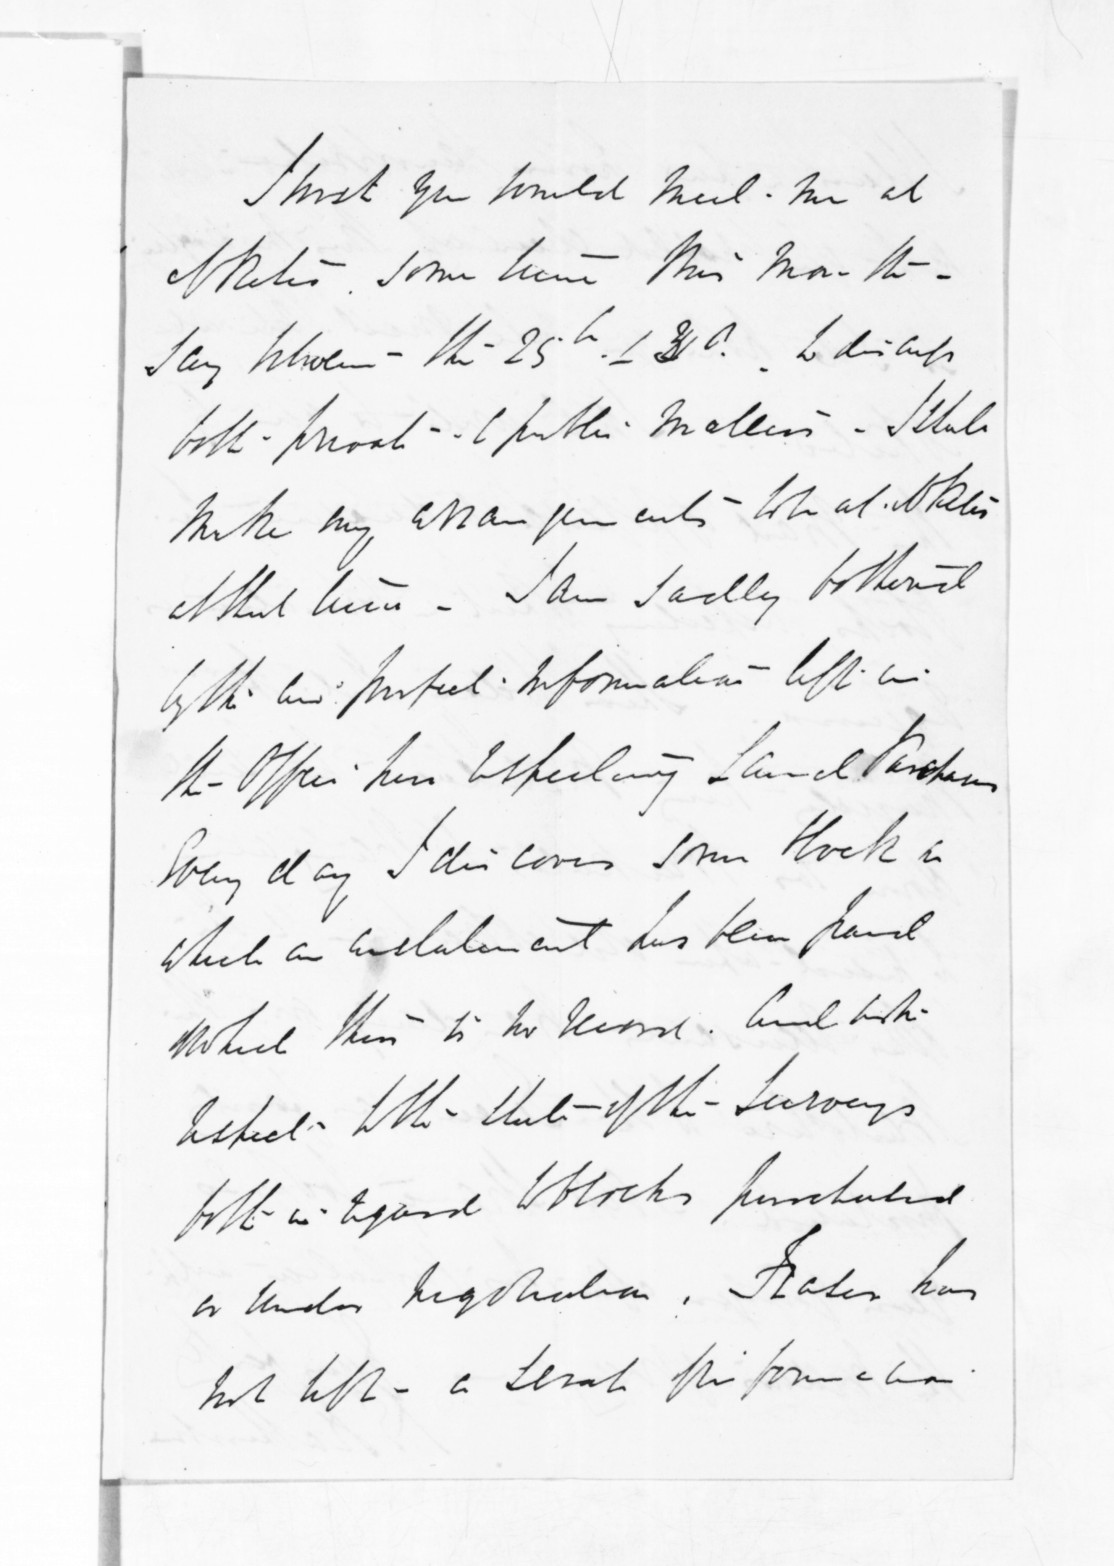 I wish you would meet me at
Aketio some time this month -
say between the 25th & 31st. to discuss
both private & public matters - I shall
make my arrangements to be at Aketio
at that time - I am sadly bothered
by the imperfect information left in
the Office here respecting Land Purchases
Every day I discover some block on
which an instalment has been paid
of which there is no record. And with
respect to the state of the surveys
both in regard to blocks purchased
or under negotiation. Fraser has
not left a scrap of information